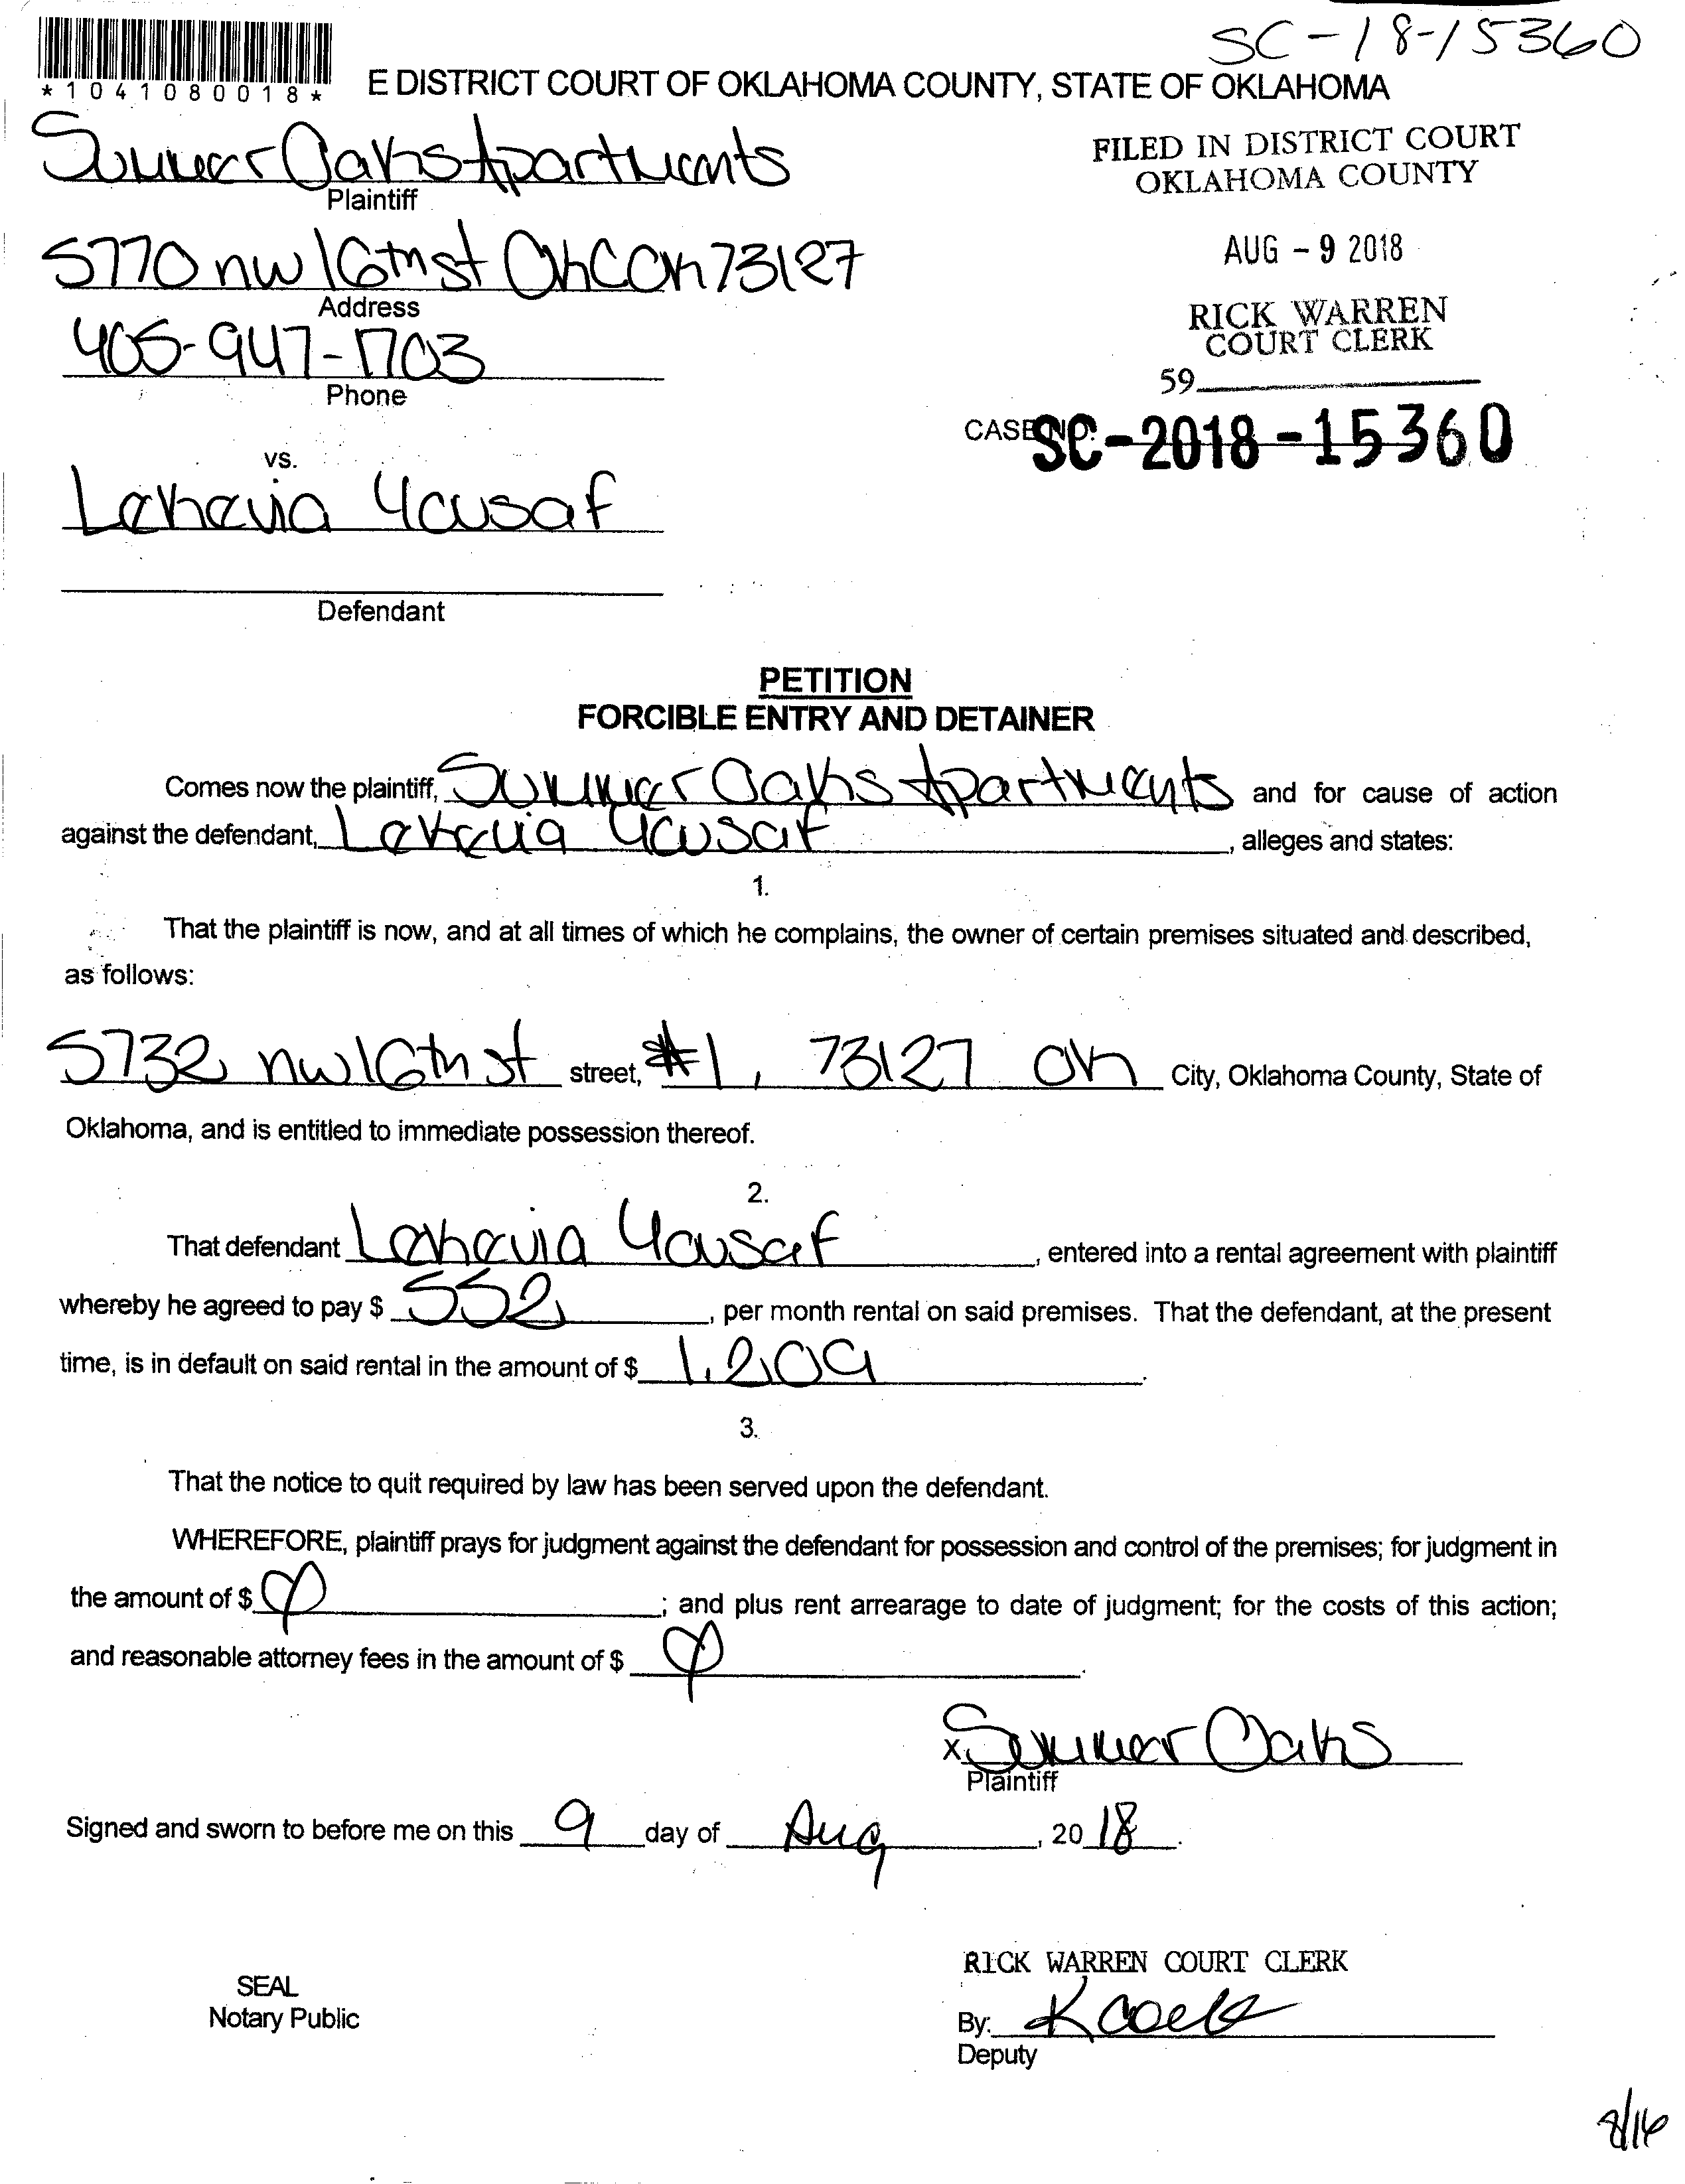 SC-18-15360
*1041080018*
E DISTRICT COURT OF OKLAHOMA COUNTY, STATE OF OKLAHOMA
Summer Oaks Apartments
Plaintiff
FILED IN DISTRICT COURT
OKLAHOMA COUNTY
5770 nw 16th st OKC OK 73127
Address
AUG - 9 2018
405-947-1703
Phone
RICK WARREN
COURT CLERK
59
CASE NO. SC-2018-15360
vs.
Yousaf
Defendant
PETITION
FORCIBLE ENTRY AND DETAINER
Comes now the plaintiff, Summer Oaks Apartments and for cause of action
against the defendant, Yousaf, alleges and states:
1.
That the plaintiff is now, and at all times of which he complains, the owner of certain premises situated and described,
as follows:
5732 nw 16th st street, #1, 73127 OK City, Oklahoma County, State of
Oklahoma, and is entitled to immediate possession thereof.
2.
That defendant Yousaf, entered into a rental agreement with plaintiff
whereby he agreed to pay $ 552, per month rental on said premises. That the defendant, at the present
time, is in default on said rental in the amount of $ 1,209.
3.
That the notice to quit required by law has been served upon the defendant.
WHEREFORE, plaintiff prays for judgment against the defendant for possession and control of the premises; for judgment in
the amount of $ ; and plus rent arrearage to date of judgment; for the costs of this action;
and reasonable attorney fees in the amount of $ .
x Summer Oaks
Plaintiff
Signed and sworn to before me on this 9 day of Aug, 2018.
RICK WARREN COURT CLERK
SEAL
Notary Public
By:
Deputy
8/16